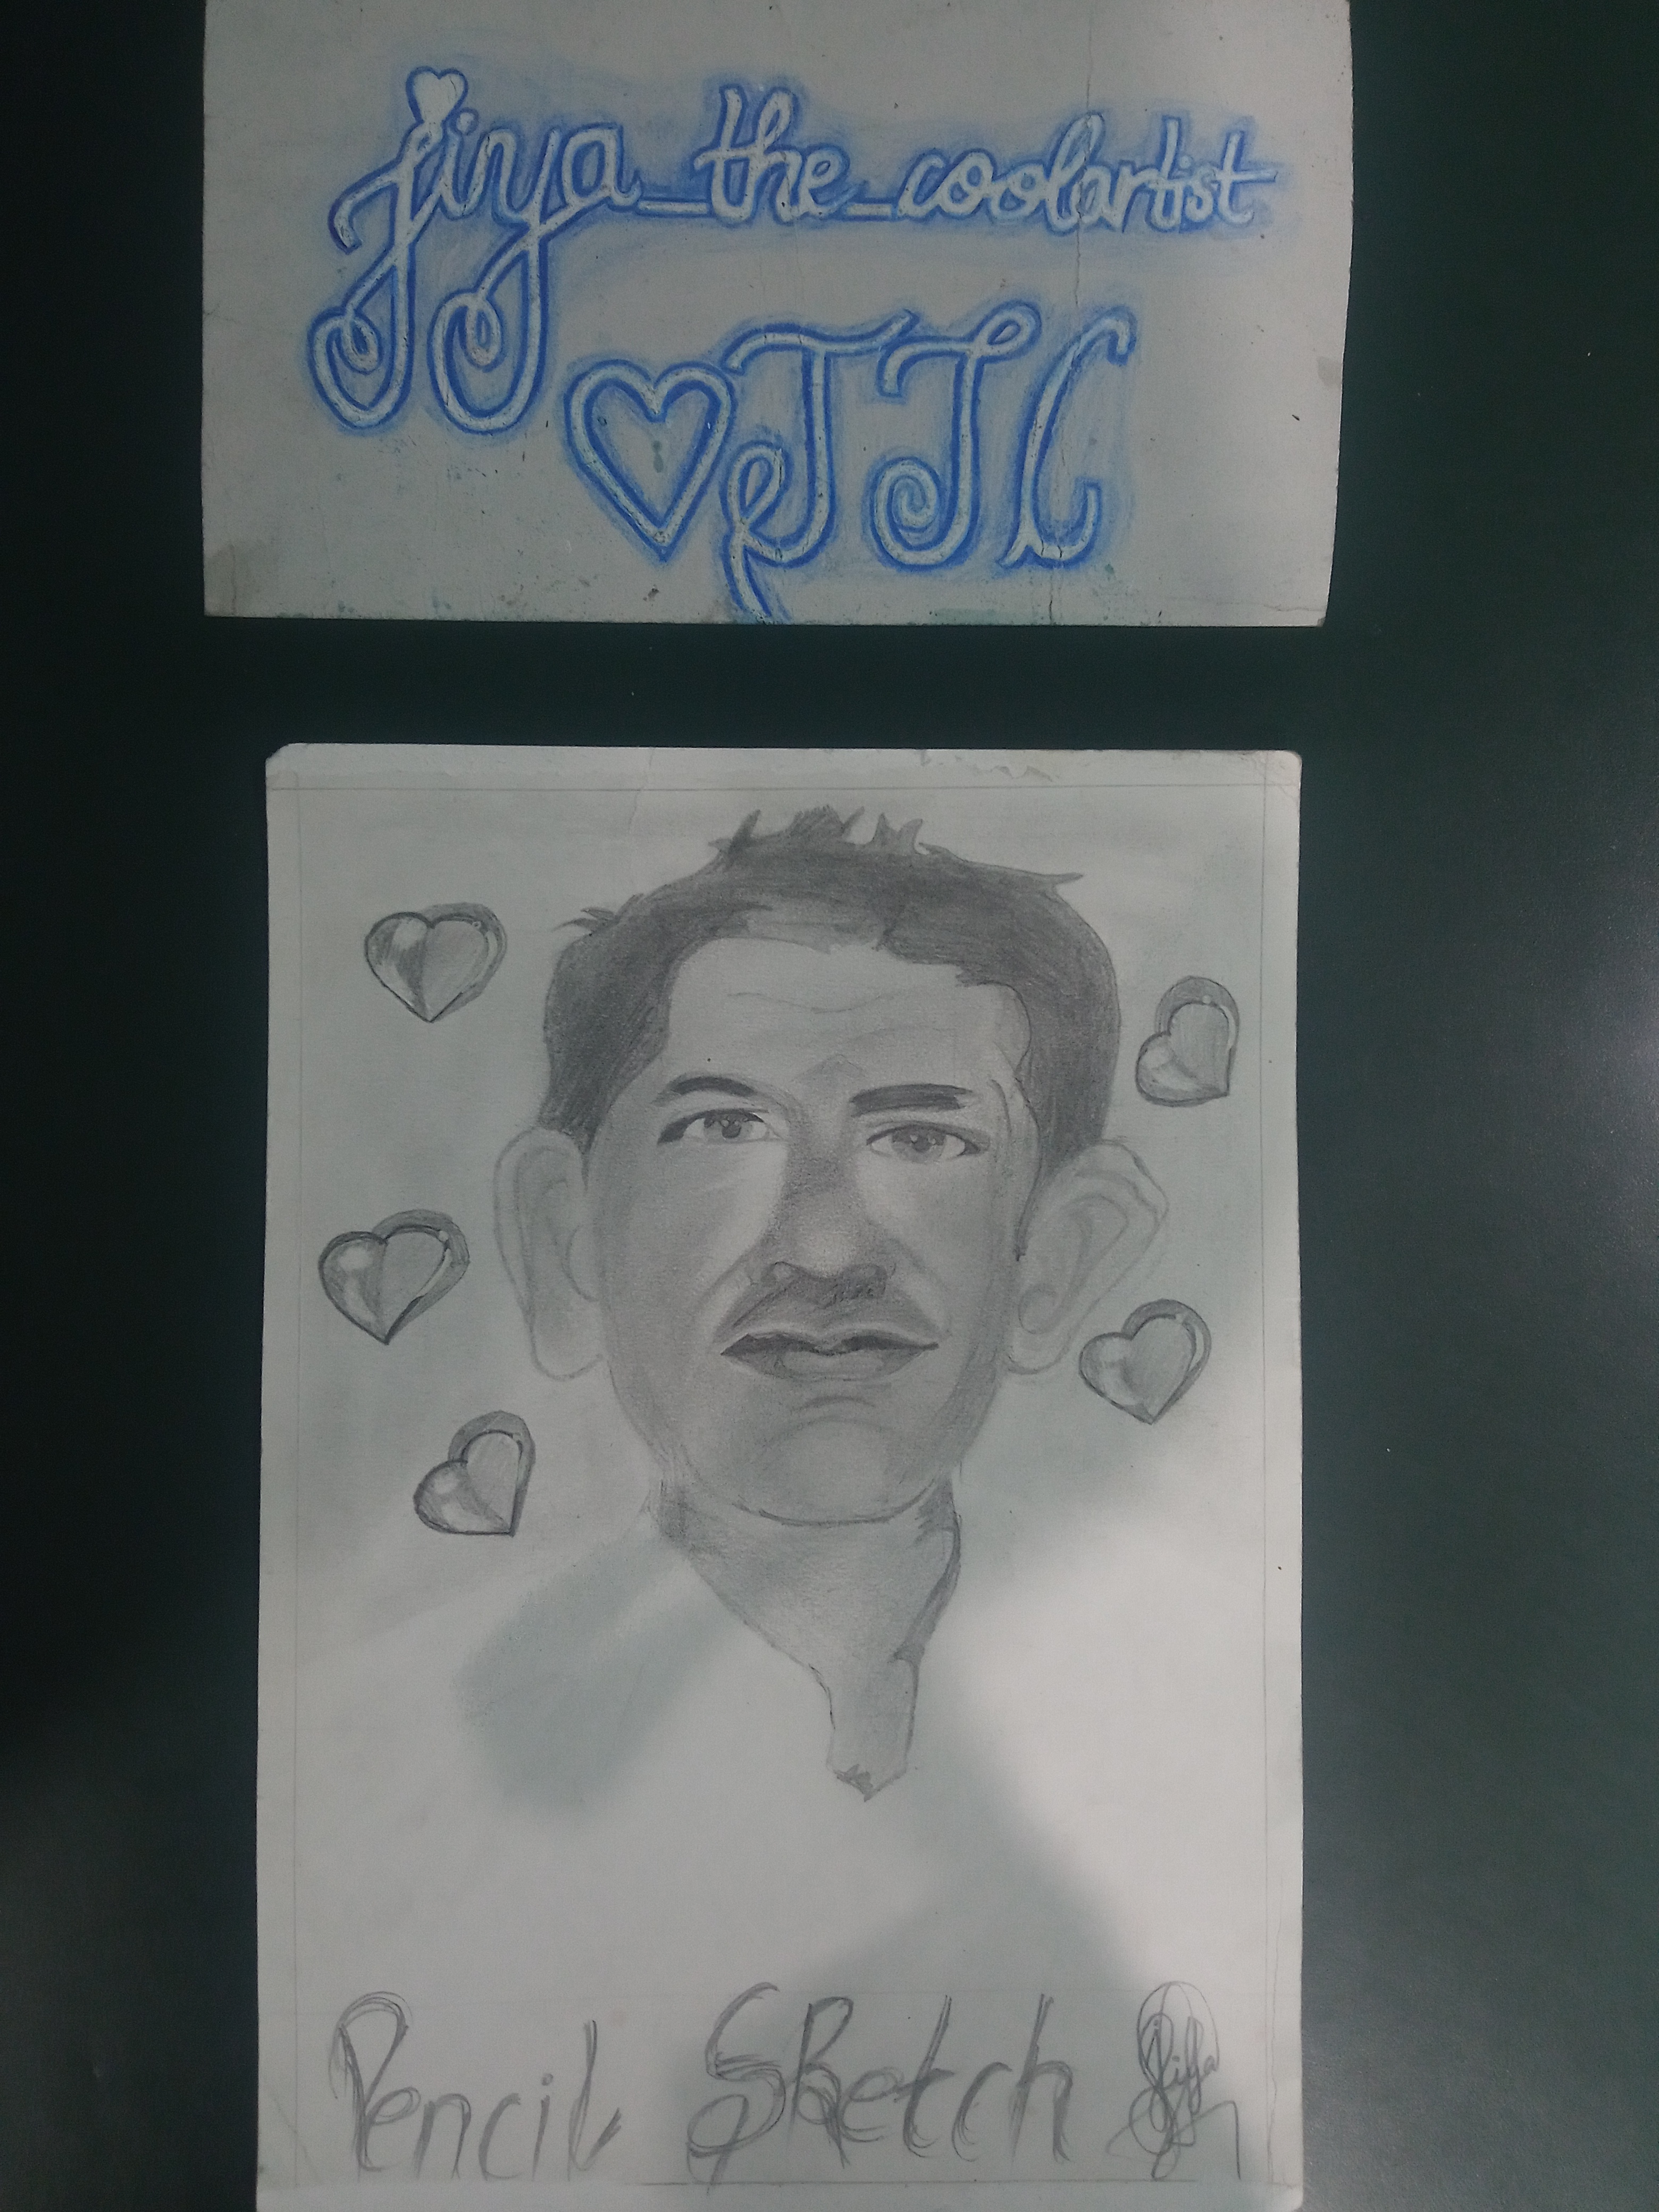 jiya_the_coolartist
JJC
Pencil Sketch
Jiya